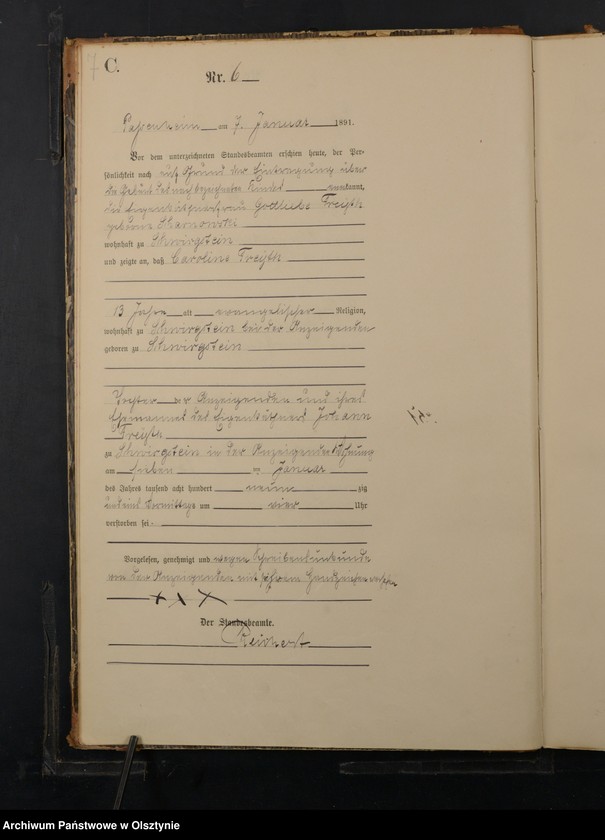 7 C.
Nr. 6
am 7. Januar 1891.
Vor dem unterzeichneten Standesbeamten erschien heute, der Per-
sönlichkeit nach auf Grund der Eintragung über
die Geburt des nachbezeichneten Kindes kannt,
die Eigenkäthnerfrau Gottliebe Freyth
geborne
wohnhaft zu Schwirgstein
und zeigte an, daß Caroline Freyth
13 Jahre alt evangelischer Religion,
wohnhaft zu Schwirgstein bei der Anzeigenden
geboren zu Schwirgstein
Tochter der Anzeigenden und ihres
Ehemannes des Eigenkäthners Johann
Freyth
zu Schwirgstein in der Anzeigenden Wohnung
am sieben ten Januar
des Jahres tausend acht hundert neun zig
und eins Vormittags um vier Uhr
verstorben sei.
Vorgelesen, genehmigt und wegen Schreibensunkunde
von der Anzeigenden mit ihrem Handzeichen versehen
+ × ×
Der Standesbeamte.
Reichert
Archiwum Państwowe w Olsztynie